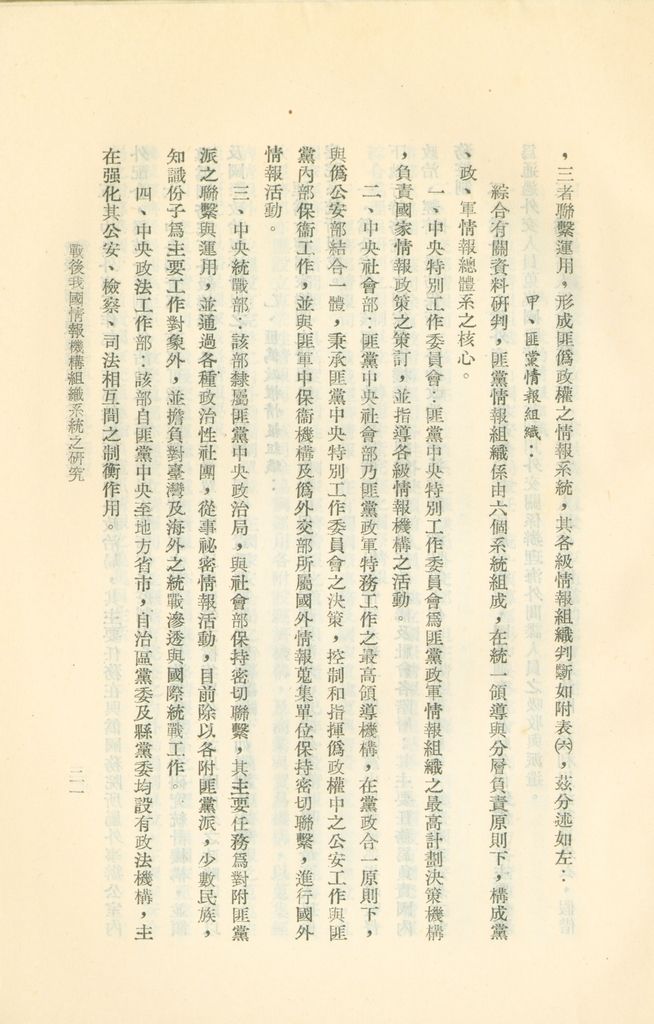 ，三者聯繫運用，形成匪僞政權之情報系統，其各級情報組織判斷如附表㈥，茲分述如左：
甲、匪黨情報組織：
綜合有關資料研判，匪黨情報組織係由六個系統組成，在統一領導與分層負責原則下，構成黨
、政、軍情報總體系之核心。
一、中央特別工作委員會：匪黨中央特別工作委員會爲匪黨政軍情報組織之最高計劃決策機構
，負責國家情報政策之策訂，並指導各級情報機構之活動。
二、中央社會部：匪黨中央社會部乃匪黨政軍特務工作之最高領導機構，在黨政合一原則下，
與僞公安部結合一體，秉承匪黨中央特別工作委員會之決策，控制和指揮僞政權中之公安工作與匪
黨內部保衞工作，並與匪軍中保衞機構及僞外交部所屬國外情報蒐集單位保持密切聯繫，進行國外
情報活動。
三、中央統戰部：該部隸屬匪黨中央政治局，與社會部保持密切聯繫，其主要任務爲對附匪黨
派之聯繫與運用，並通過各種政治性社團，從事祕密情報活動，目前除以各附匪黨派，少數民族，
知識份子爲主要工作對象外，並擔負對臺灣及海外之統戰滲透與國際統戰工作。
四、中央政法工作部：該部自匪黨中央至地方省市，自治區黨委及縣黨委均設有政法機構，主
在强化其公安、檢察、司法相互間之制衡作用。
戰後我國情報機構組織系統之研究
二一